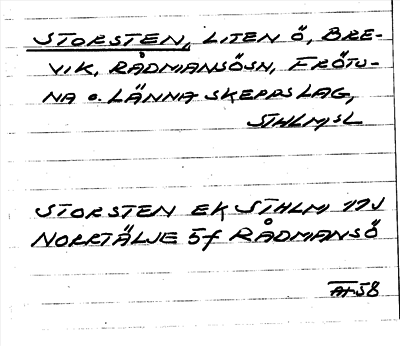 STORSTEN, LITEN Ö, BRE-
VIK, RÅDMANSÖSN, FRÖTU-
NA o. LÄNNA SKEPPSLAG,
STHLMSL
STORSTEN EK STHLM 11J
NORRTÄLJE 5f RÅDMANSÖ
58